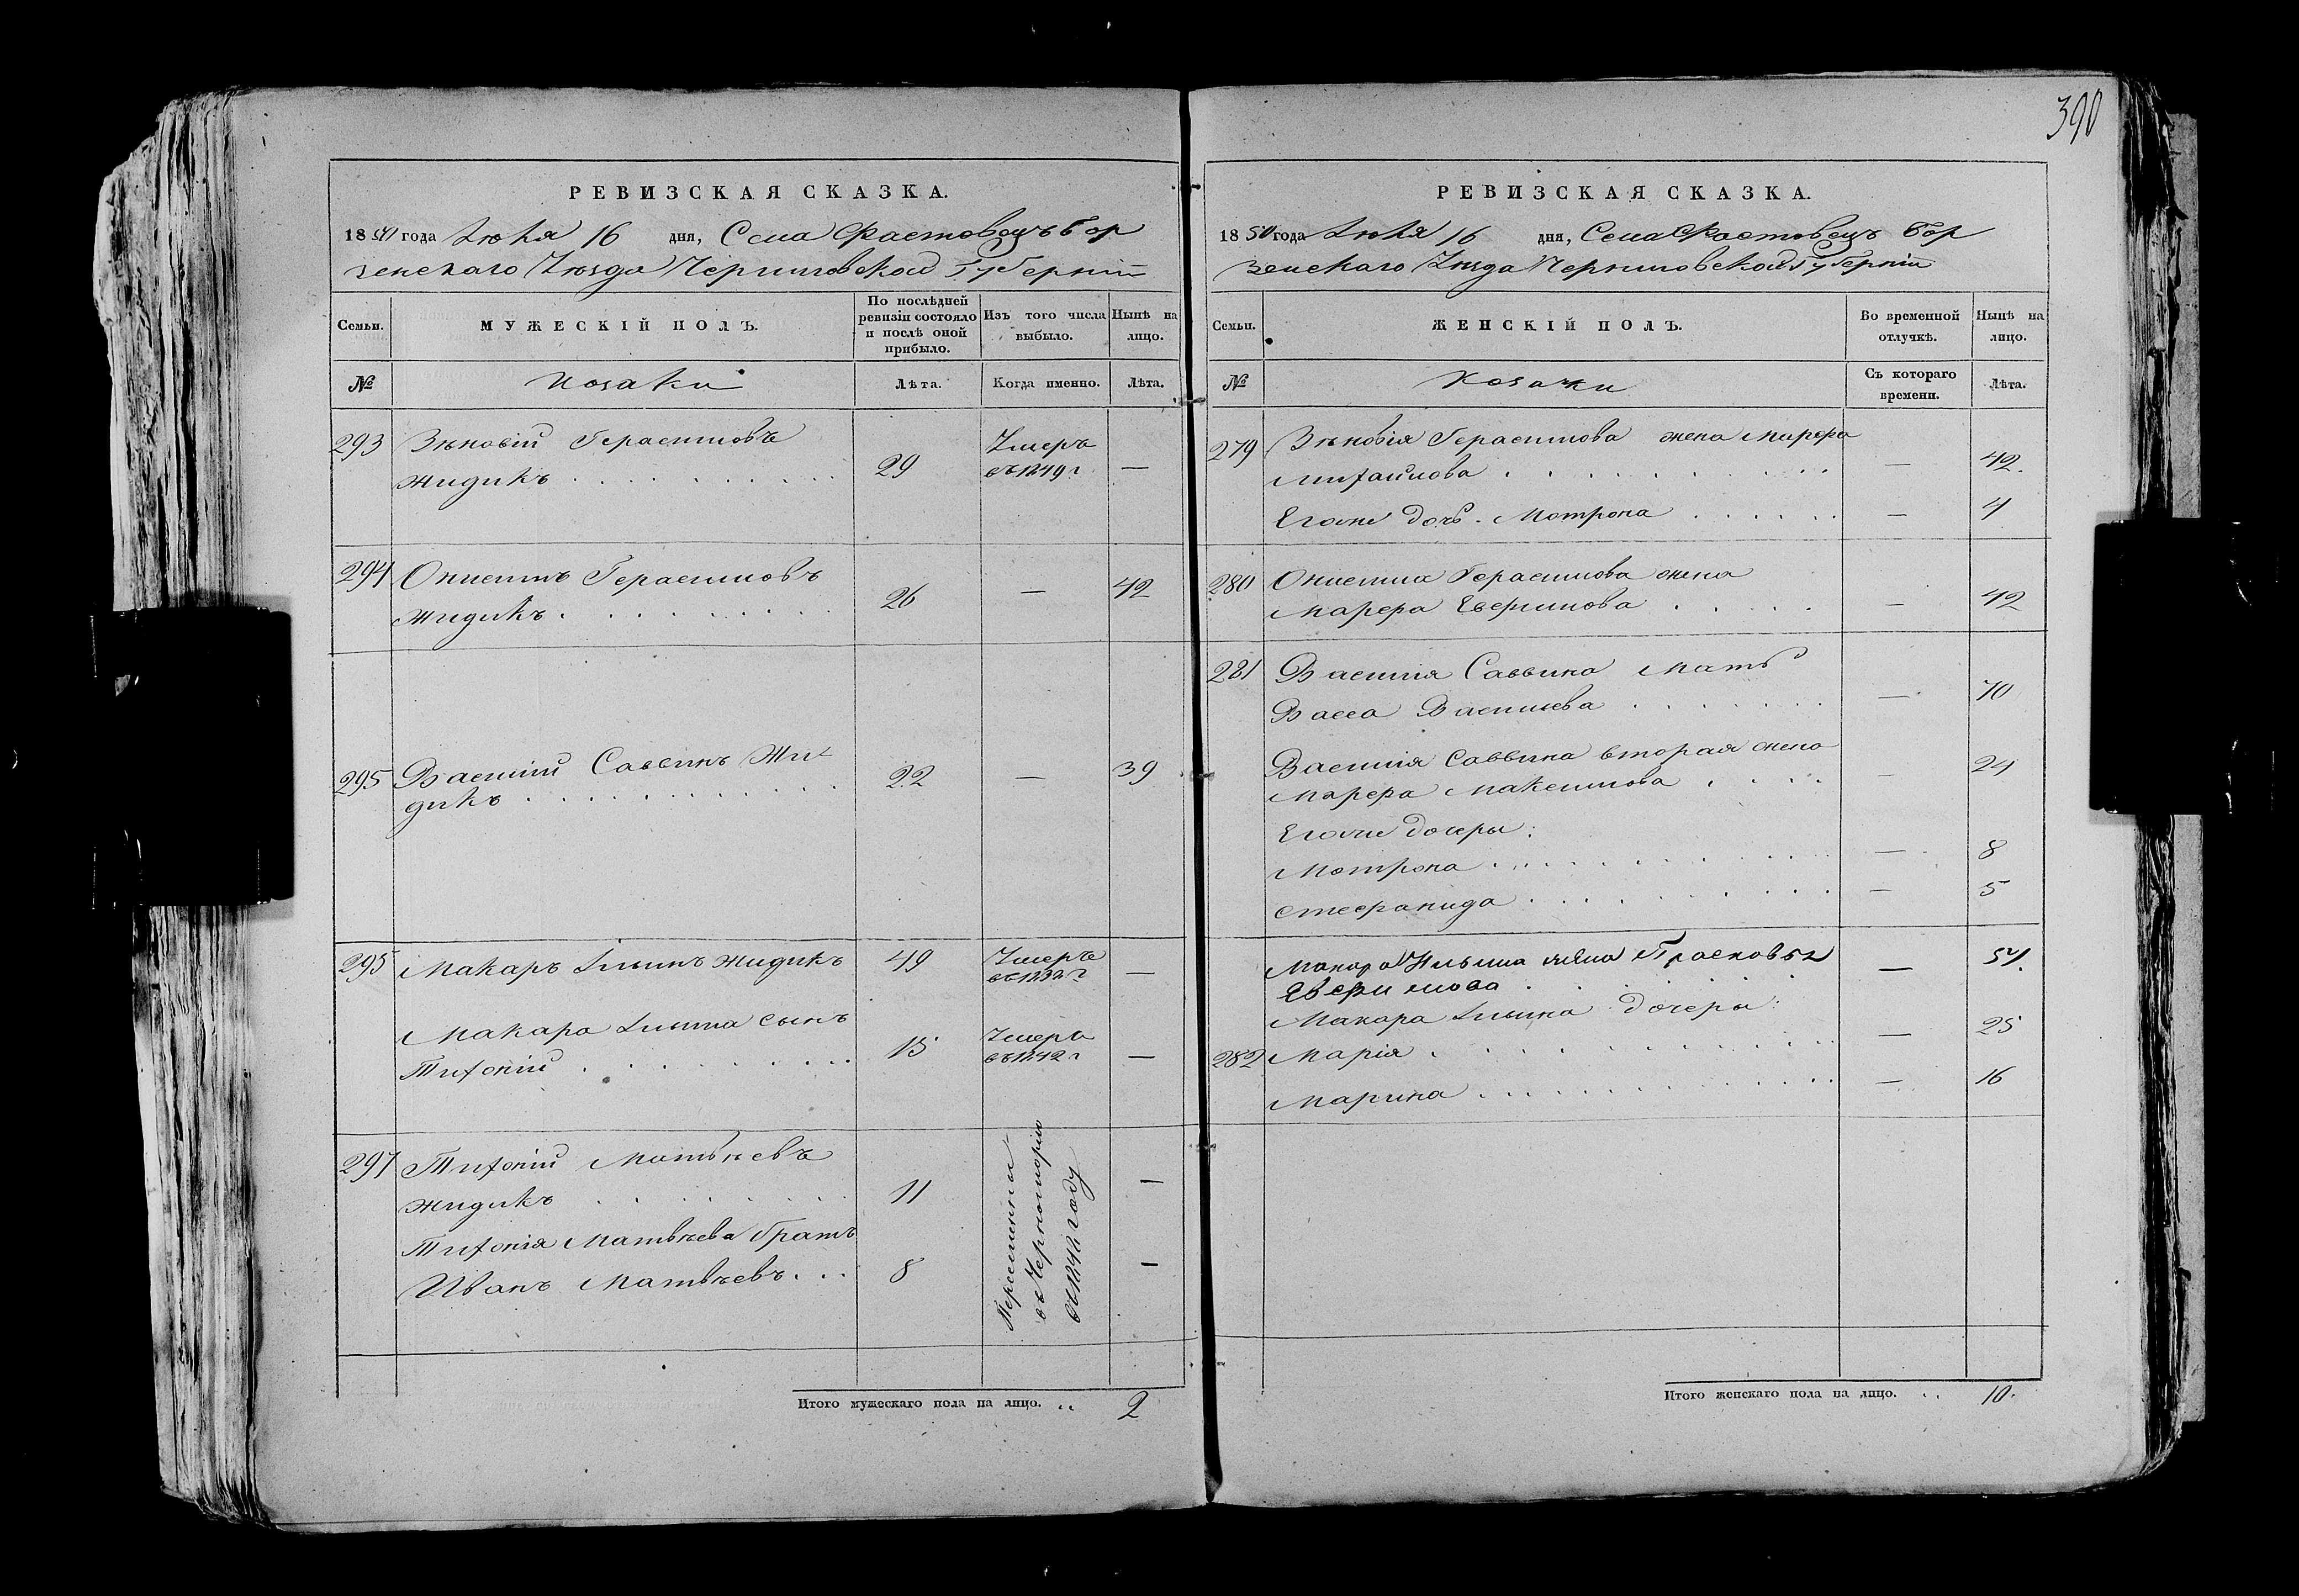 390
РЕВИЗСКАЯ СКАЗКА.
1850 года Іюня 16 дня, Села Фастовецъ Бор
зенскаго Уѣзда Черниговской Губерніи
Семьи.
МУЖЕСКІЙ ПОЛЪ.
По послѣдней ревизіи состояло и послѣ оной прибыло.
Изъ того числа выбыло.
Нынѣ на лицо.
№
Козаки
Лѣта.
Когда именно.
Лѣта.
293 Зѣновій Герасимовъ Умеръ
Жидикъ 29 въ 1849 г —
294 Онисимъ Герасимовъ
Жидикъ 26 — 42
295 Василій Саввинъ Жи
дикъ 22 — 39
295 Макаръ Ильинъ Жидикъ 49 Умеръ въ 1832 г —
Макара Ильина сынъ
Тихоній 15 Умеръ въ 1842 г —
297 Тихоній Матвѣевъ
Жидикъ 11 —
Тихонія Матвѣева братъ
Иванъ Матвѣевъ 8 —
въ Черноморію
въ 1842 году
Итого мужескаго пола на лицо. 2
РЕВИЗСКАЯ СКАЗКА.
1850 года Іюня 16 дня, Села Фастовецъ Бор
зенскаго Уѣзда Черниговской Губерніи
Семьи.
ЖЕНСКІЙ ПОЛЪ.
Во временной отлучкѣ.
Нынѣ на лицо.
№
Козачки
Съ котораго времени.
Лѣта.
279 Зѣновія Герасимова жена Марфа
Михайлова — 42.
Его же дочь Мотрона — 4
280 Онисима Герасимова жена
Марфа Евфимова — 42
281 Василія Саввина мать
Васса Васильева — 70
Василія Саввина вторая жена
Марфа Максимова — 24
Его же дочери:
Мотрона — 8
Стефанида — 5
Макара Ильина жена Прасковья — 54.
Евфимова
Макара Ильина дочери:
282 Марія — 25
Марина — 16
Итого женскаго пола на лицо. 10.